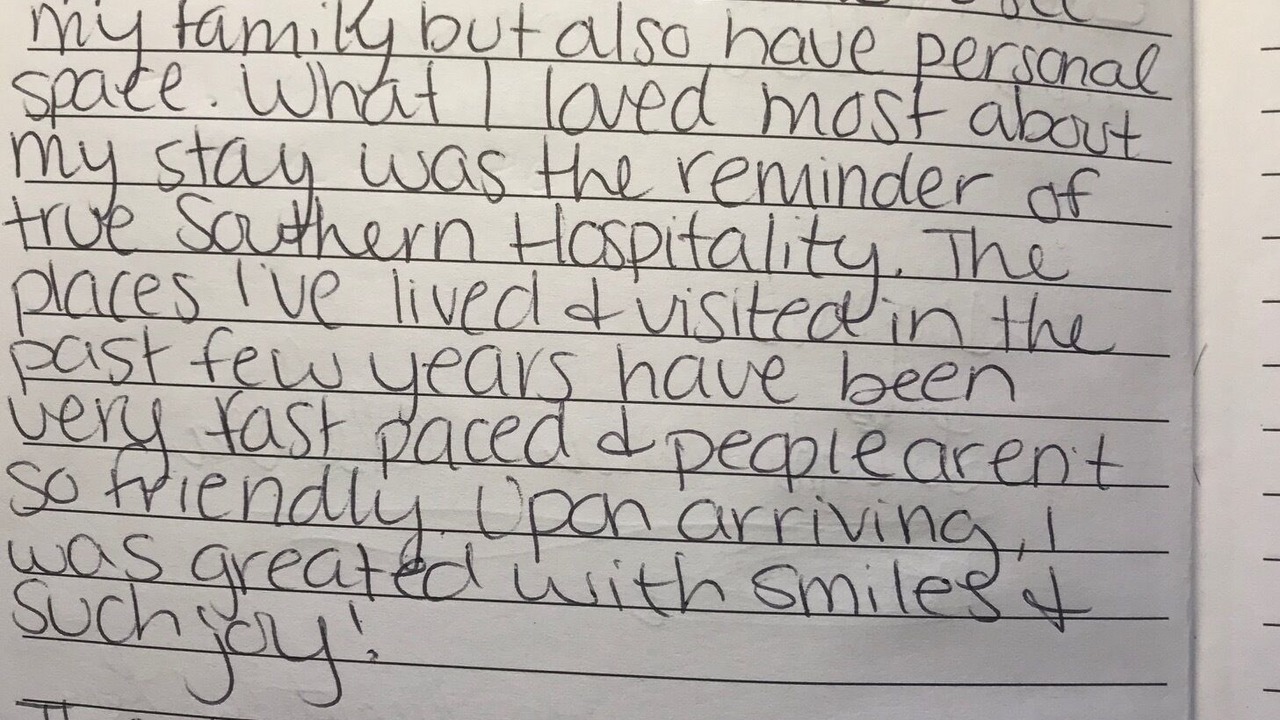 my family but also have personal
space. What I loved most about
my stay was the reminder of
true Southern Hospitality. The
places I've lived & visited in the
past few years have been
very fast paced & people aren't
so friendly. Upon arriving, I
was greated with smiles &
such joy!